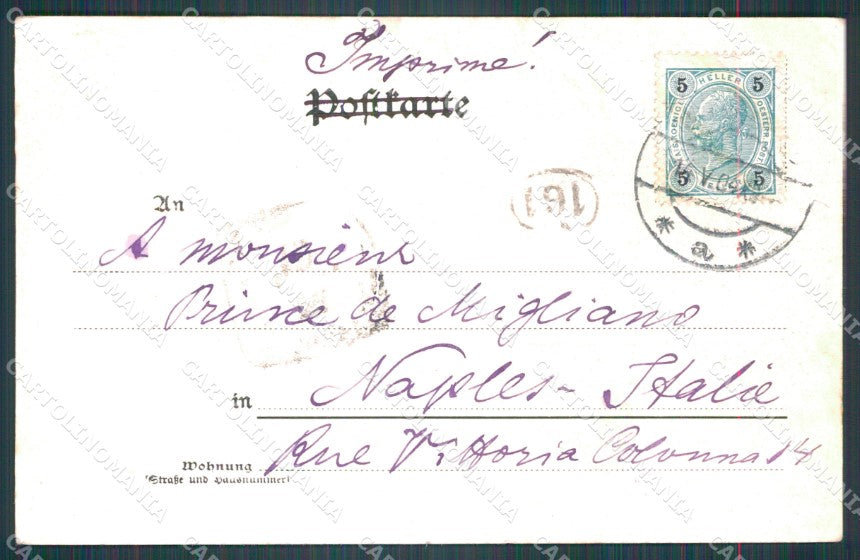 Imprimé!
Postkarte
5 HELLER 5
5 5
161
* a *
An
A monsieur
Prince de Migliano
in Naples - Italie
Wohnung
(Straße und Hausnummer)
Rue Vittoria Colonna 14
CARTOLINOMANIA